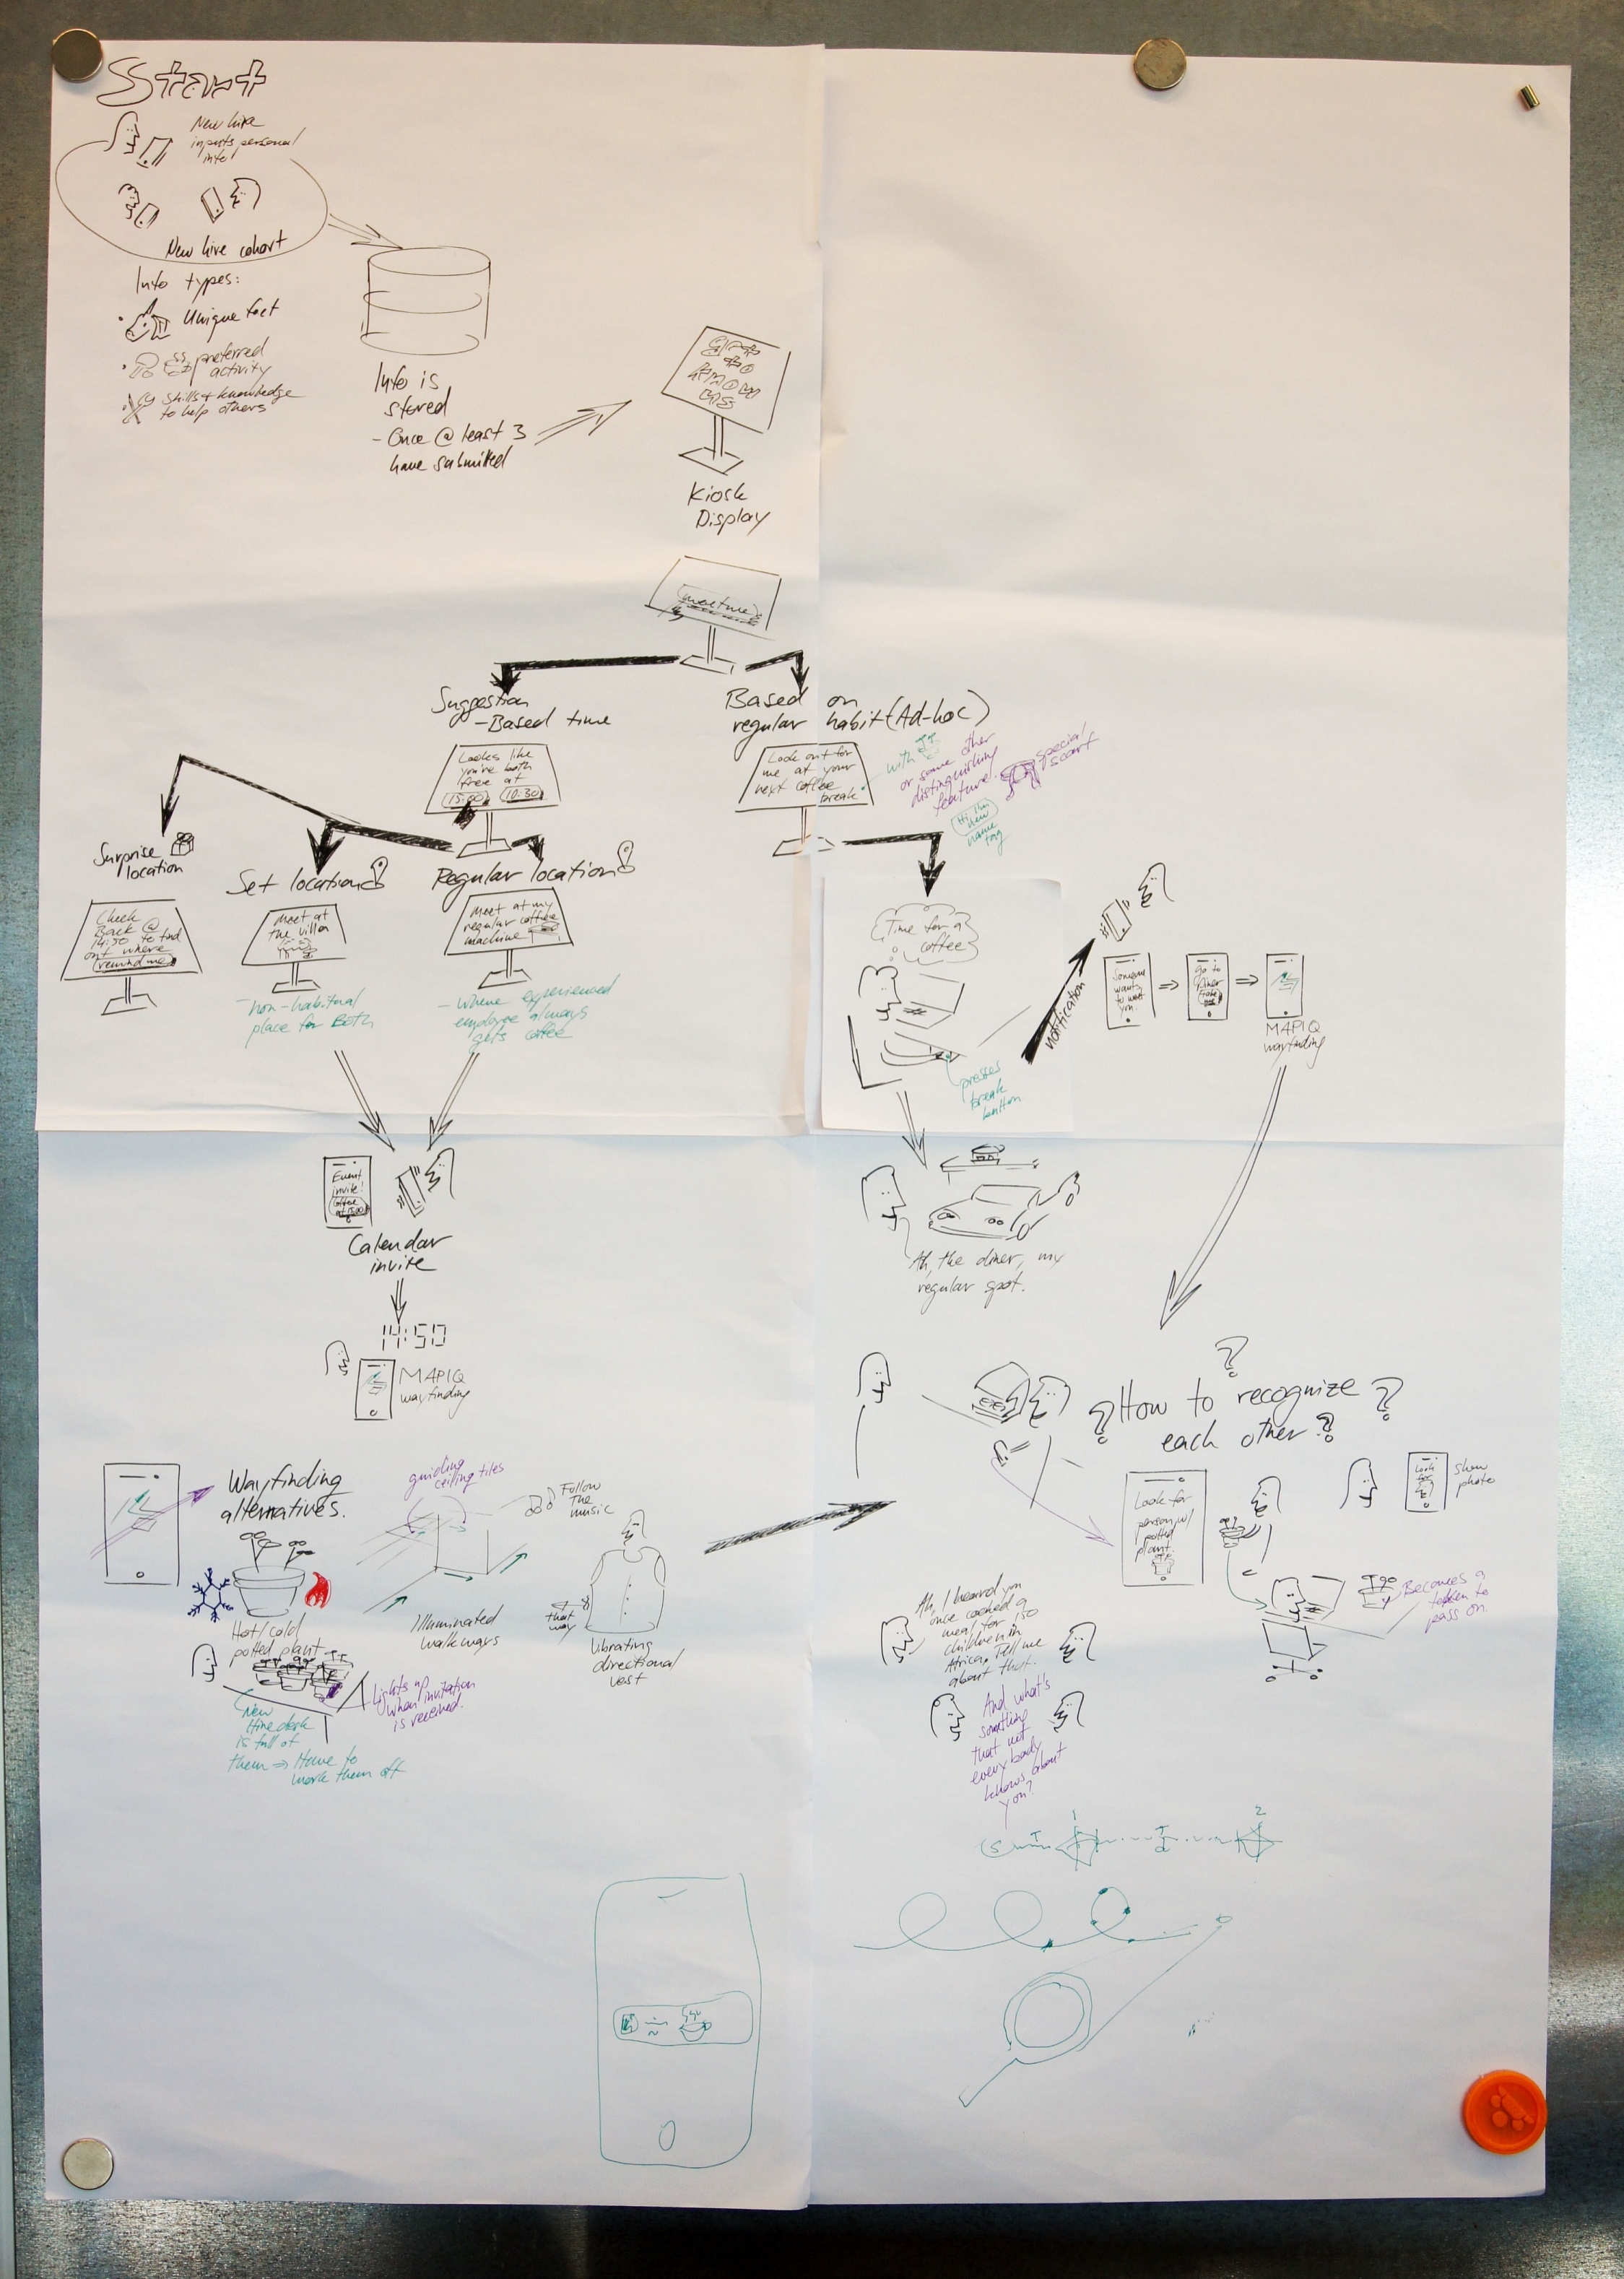 Start
New hire
inputs personal
info
New hire cohort
Info types:
Unique fact
preferred
activity
skills + knowledge
to help others
Info is
stored
- Once @ least 3
have submitted
Kiosk
Display
meet me
Suggestion
- Based time
Based on
regular habit (Ad-hoc)
Looks like
you're both
free at
15:00 10:30
Look out for
me at your
next coffee
break
with
or some other
distinguishing
feature.
special
scarf
Hi I'm
new
name
tag
Surprise
location
Set location
Regular location
Check
Back @
14:50 to find
out where
remind me
Meet at
the villa
Meet at my
regular coffee
machine
- non-habitual
place for Both
- where experienced
employee always
gets coffee
Time for a
coffee
presses
break
button
notification
Someone
wants
to meet
you.
Go to
diner
MAPIQ
wayfinding
Event
invite!
Coffee
at 15:00
Calendar
invite
14:50
MAPIQ
wayfinding
Ah, the diner, my
regular spot.
How to recognize
each other?
Look for
person w/
potted
plant.
Look
for
show
photo
Becomes a
token to
pass on.
Wayfinding
alternatives.
guiding
ceiling tiles
Follow
The
music
Hot/cold
potted plant
Illuminated
walkways
that
way
Vibrating
directional
vest
Lights up
when invitation
is received.
New
Hire desk
is full of
them ⇒ Have to
work them off
Ah, I heard you
once cooked a
meal for 150
children in
Africa. Tell me
about that.
And what's
something
that not
everybody
knows about
you?
S T 1 T 2